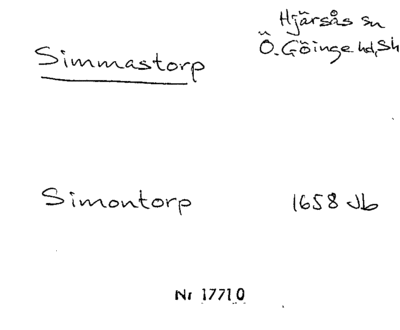 Hjärsås sn
Simmastorp Ö. Göinge hd, Sk
Simontorp 1658 Jb
Nr 17710